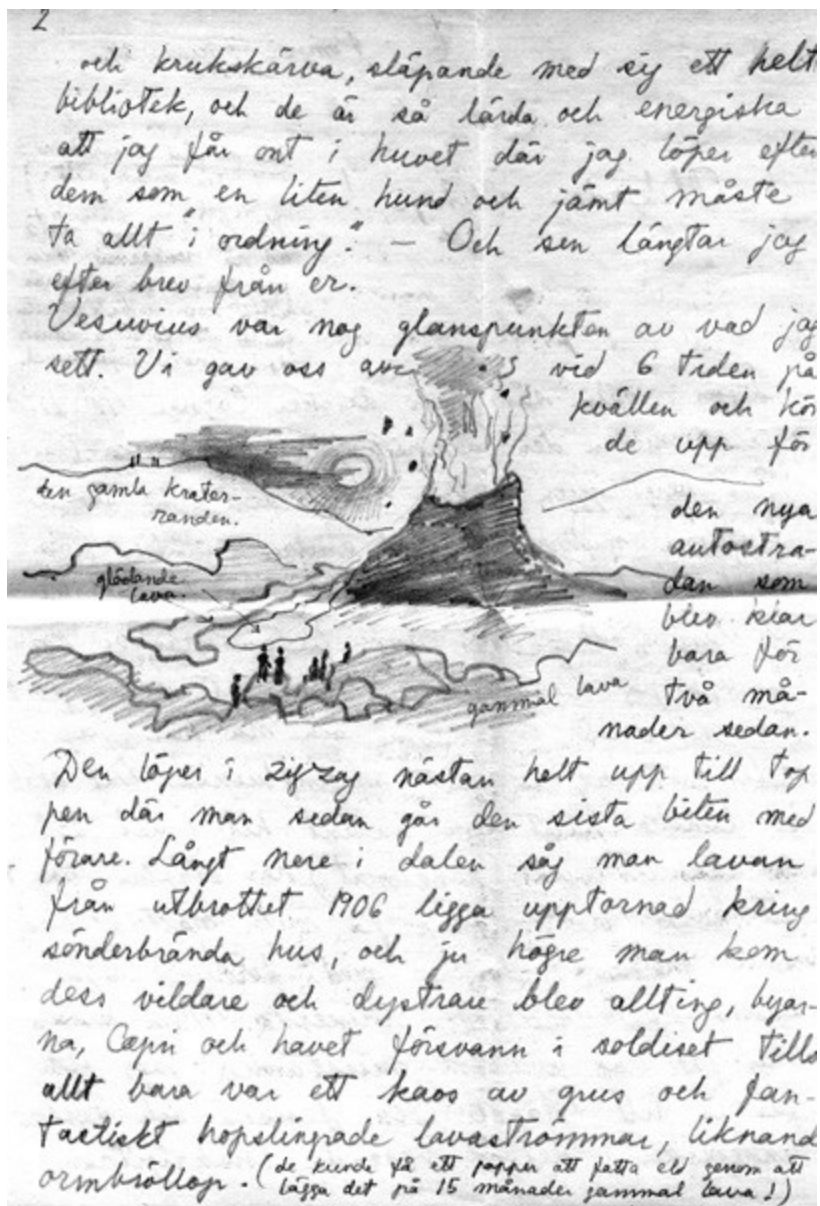 2
och krukskärva, släpande med sig ett helt
bibliotek, och de är så lärda och energiska
att jag får ont i huvet där jag löper efter
dem som en liten hund och jämt måste
ta allt "i ordning." — Och sen längtar jag
efter brev från er.
Vesuvius var nog glanspunkten av vad jag
sett. Vi gav oss av vid 6 tiden på
kvällen och kör
de upp för
den gamla krater-
randen.
den nya
autostra-
dan som
glödande
lava.
blev klar
bara för
två må-
gammal lava
nader sedan.
Den löper i zigzag nästan helt upp till top
pen där man sedan går den sista biten med
förare. Långt nere i dalen såg man lavan
från utbrottet 1906 ligga upptornad kring
sönderbrända hus, och ju högre man kom
dess vildare och dystrare blev allting, byar-
na, Capri och havet försvann i soldiset tills
allt bara var ett kaos av grus och fan-
tastiskt hopslingrade lavaströmmar, liknand
ormbröllop. (de kunde få ett papper att fatta eld genom att
lägga det på 15 månader gammal lava!)